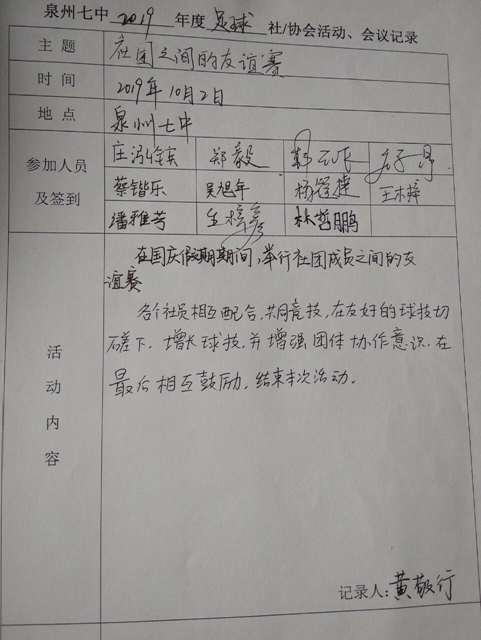 泉州七中 2019 年度 足球 社/协会活动、会议记录
主 题 社团之间的友谊赛
时 间 2019年10月2日
地 点 泉州七中
参加人员
及签到
郑毅
蔡锴乐 吴旭年 王木梓
潘雅芳 林哲鹏
活动内容
在国庆假期期间,举行社团成员之间的友
谊赛
各个社员相互配合,共同竞技,在友好的球技切
磋下,增长球技,并增强团体协作意识,在
最后相互鼓励,结束本次活动。
记录人:黄敬行